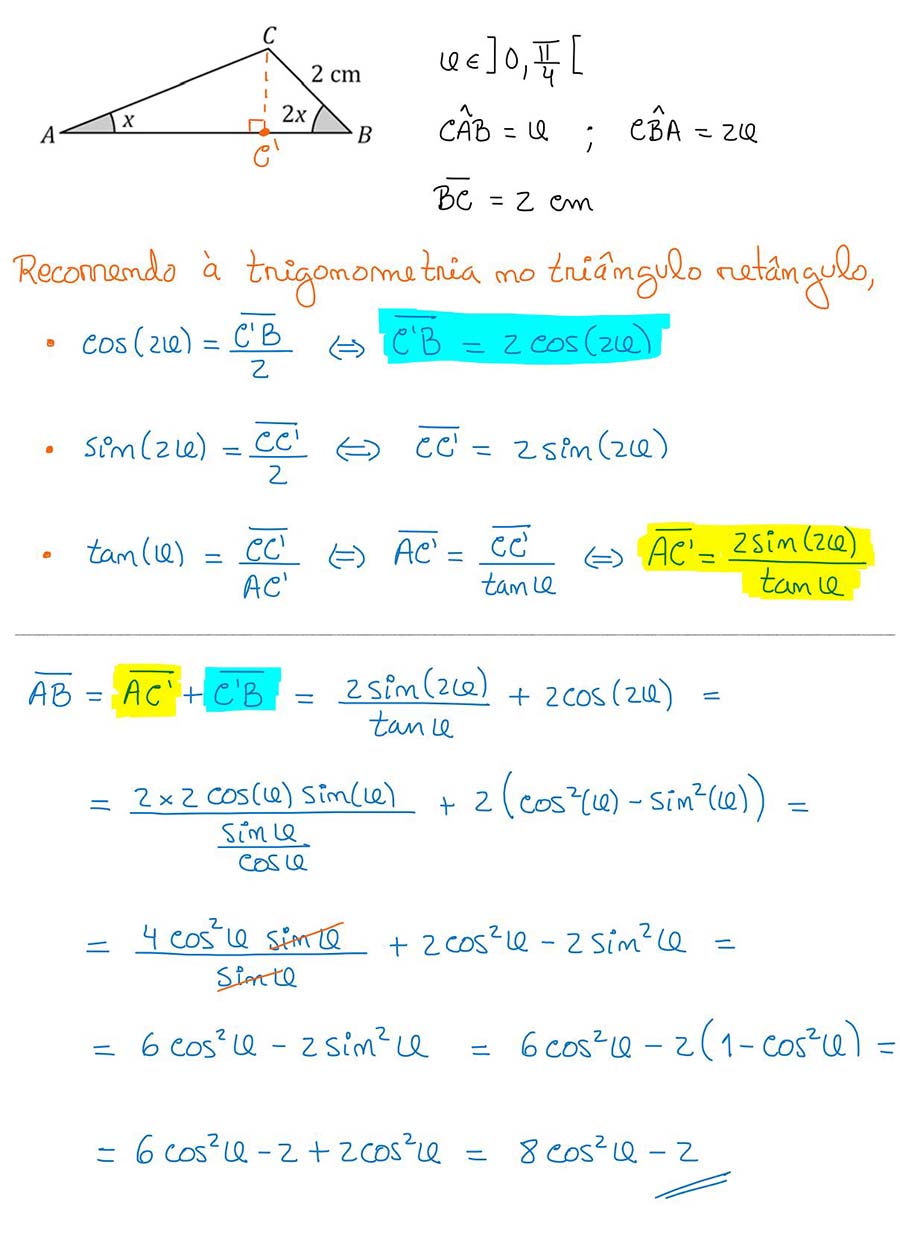 C
2 cm
x
2x
A
B
C'
x ∈ ]0, π/4[
CÂB = x ; CB̂A = 2x
B̅C̅ = 2 cm
Recorrendo à trigonometria no triângulo retângulo,
• cos(2x) = C̅'̅B̅/2 ⇔ C̅'̅B̅ = 2 cos(2x)
• sin(2x) = C̅C̅'̅/2 ⇔ C̅C̅'̅ = 2 sin(2x)
• tan(x) = C̅C̅'̅/A̅C̅'̅ ⇔ A̅C̅'̅ = C̅C̅'̅/tan x ⇔ A̅C̅'̅ = 2sin(2x)/tan x
A̅B̅ = A̅C̅'̅ + C̅'̅B̅ = 2sin(2x)/tan x + 2cos(2x) =
= (2 × 2 cos(x) sin(x))/(sin x/cos x) + 2(cos²(x) − sin²(x)) =
= (4 cos²x sin x)/(sin x) + 2cos²x − 2sin²x =
= 6 cos²x − 2 sin²x = 6cos²x − 2(1 − cos²x) =
= 6 cos²x − 2 + 2cos²x = 8 cos²x − 2